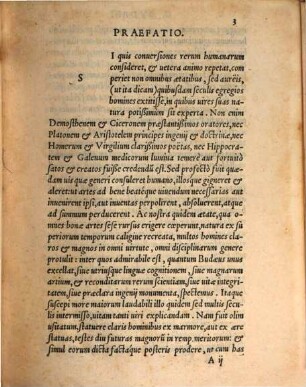 3
PRAEFATIO.
SI quis conuersiones rerum humanarum
consideret, & uetera animo repetat, com
periet non omnibus ætatibus, sed aureis,
(ut ita dicam) quibusdam seculis egregios
homines extitisse, in quibus uires suas na
tura potissimum sit experta. Non enim
Demosthenem & Ciceronem præstantissimos oratores, nec
Platonem & Aristotelem principes ingenij & doctrinæ, nec
Homerum & Virgilium clarissimos poëtas, nec Hippocra
tem & Galenum medicorum lumina temerè aut fortuitò
satos & creatos fuisse credendum est. Sed profectò fuit quæ
dam uis quæ generi consuleret humano, illosque gigneret &
aleret: ut artes ad bene beatéque uiuendum necessarias aut
inuenirent ipsi, aut inuentas perpolirent, absoluerent, atque
ad summum perducerent. Ac nostra quidem ætate, quum om
nes bonæ artes sese rursus erigere cœperunt, natura ex su
periorum temporum caligine recreata, multos homines cla
ros & magnos in omni uirtute, omni disciplinarum genere
protulit: inter quos admirabile est, quantum Budæus unus
excellat, siue utriusque linguæ cognitionem, siue magnarum
artium, & reconditarum rerum scientiam, siue uitæ integri
tatem, siue præclara ingenij monumenta, spectemus. Itaque
suscepi more maiorum laudabili illo quidem sed multis secu
lis intermisso, uitam tanti uiri explicandam. Nam fuit olim
usitatum, statuere claris hominibus ex marmore, aut ex ære
statuas, testes diu futuras magnorū in remp. meritorum: &
simul eorum dicta factáque posteris prodere, ut cum has
A ij